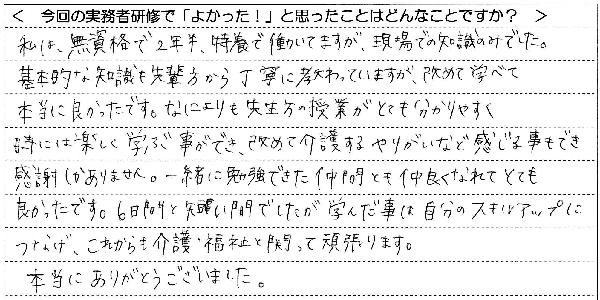 ＜　今回の実務者研修で「よかった！」と思ったことはどんなことですか？　＞
私は、無資格で2年半、特養で働いてますが、現場での知識のみでした。
基本的な知識も先輩方から丁寧に教わっていますが、改めて学べて
本当に良かったです。なによりも先生方の授業がとても分かりやすく
時には楽しく学ぶ事ができ、改めて介護するやりがいなど感じる事もでき
感謝しかありません。一緒に勉強できた仲間とも仲良くなれてとても
良かったです。6日間と短い間でしたが学んだ事は自分のスキルアップに
つなげ、これからも介護・福祉と関って頑張ります。
本当にありがとうございました。